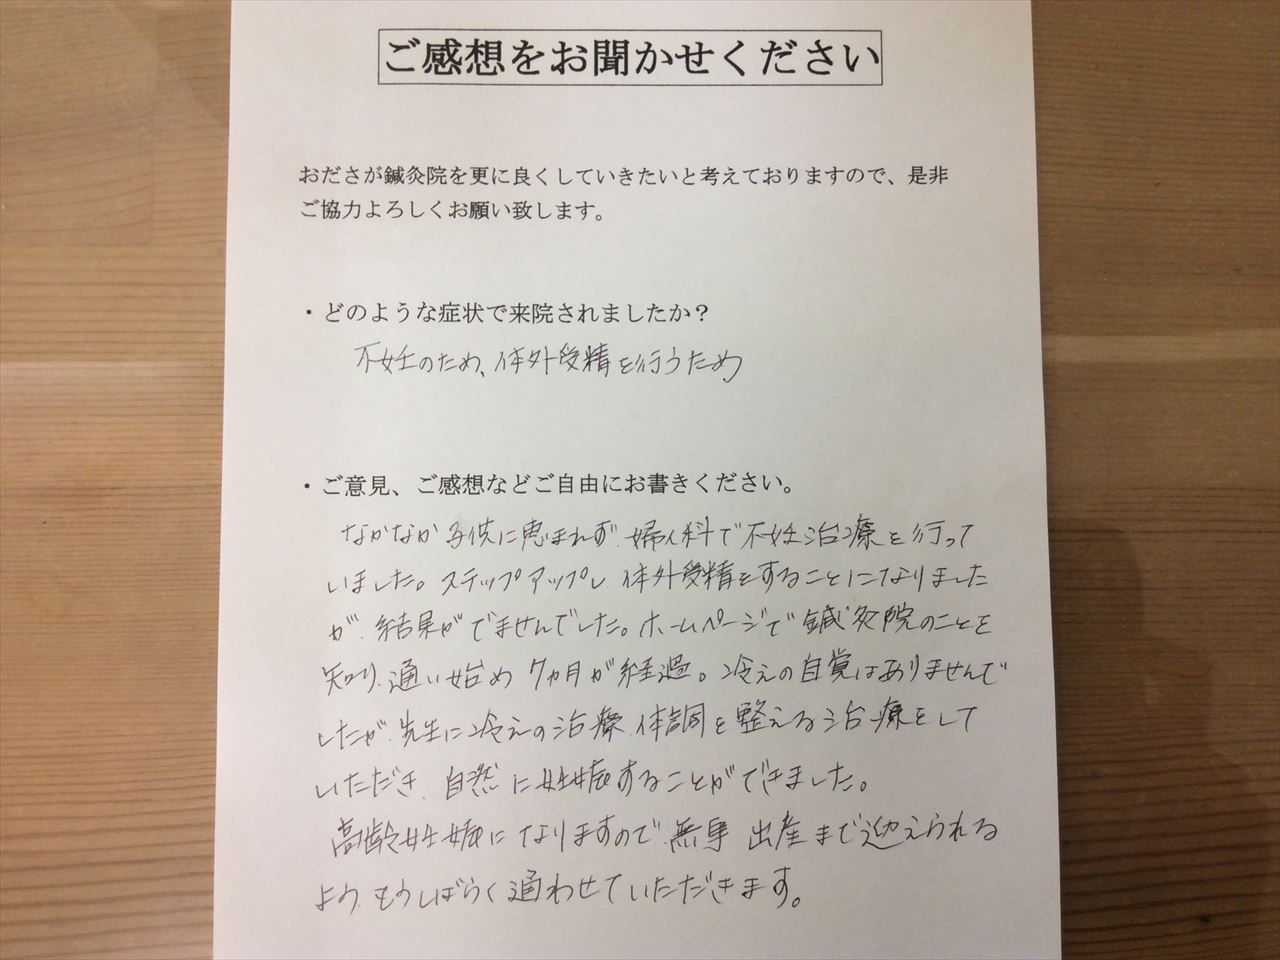 ご感想をお聞かせください
おださが鍼灸院を更に良くしていきたいと考えておりますので、是非
ご協力よろしくお願い致します。
・どのような症状で来院されましたか？
不妊のため、体外受精を行うため
・ご意見、ご感想などご自由にお書きください。
なかなか子供に恵まれず、婦人科で不妊治療を行って
いました。ステップアップし体外受精をすることになりました
が、結果がでませんでした。ホームページで鍼灸院のことを
知り、通い始め7ヵ月が経過。冷えの自覚はありませんで
したが、先生に冷えの治療、体調を整える治療をして
いただき、自然に妊娠することができました。
高齢妊娠になりますので、無事出産まで迎えられる
よう、もうしばらく通わせていただきます。